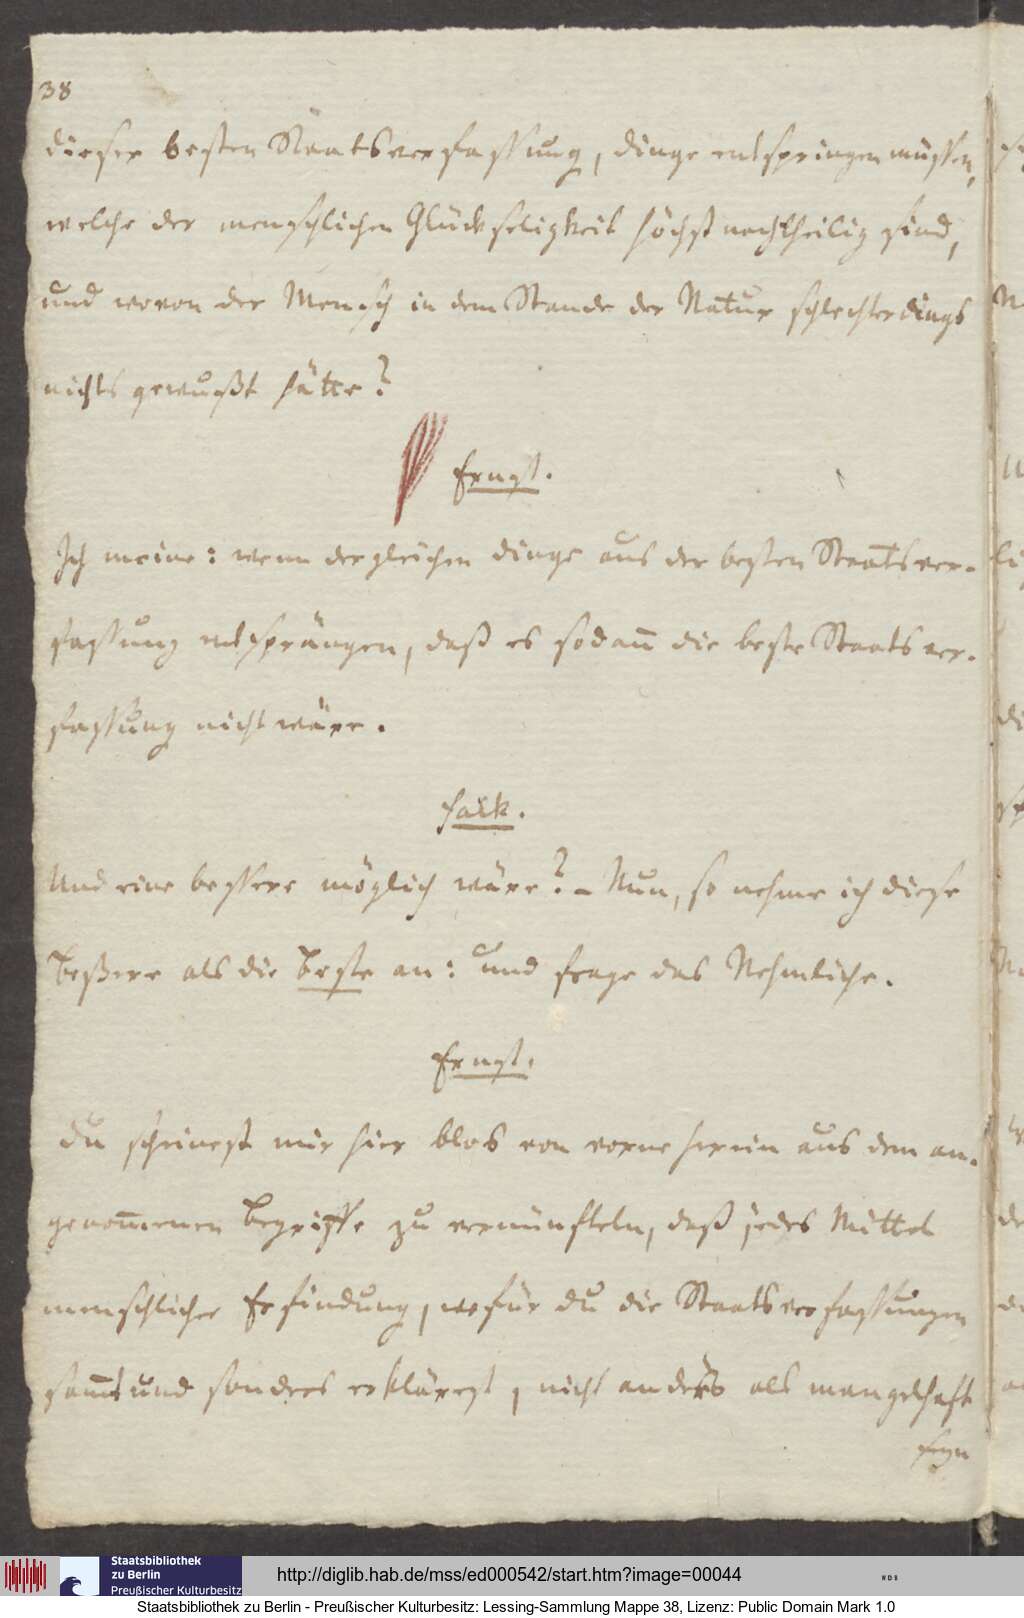 38
dieser besten Staatsverfassung, Dinge entspringen müssen,
welche der menschlichen Glückseligkeit höchst nachtheilig sind,
und wovon der Mensch in dem Stande der Natur schlechterdings
nichts gewußt hätte?
Ernst.
Ich meine: wenn dergleichen Dinge aus der besten Staatsver-
fassung entsprängen, daß es sodan̄ die beste Staatsver-
fassung nicht wäre.
Falk.
Und eine bessere möglich wäre? - Nun, so nehme ich diese
Beßere als die Beste an: und frage das Nehmliche.
Ernst.
Du scheinest mir hier blos von vorne herein aus dem an-
genom̄enen Begriffe zu vernünfteln, daß jedes Mittel
menschlicher Erfindung, wofür du die Staatsverfassungen
sam̄t und sonders erklärest, nicht anders als mangelhaft
seyn
Staatsbibliothek
zu Berlin
Preußischer Kulturbesitz
http://diglib.hab.de/mss/ed000542/start.htm?image=00044
Staatsbibliothek zu Berlin - Preußischer Kulturbesitz: Lessing-Sammlung Mappe 38, Lizenz: Public Domain Mark 1.0